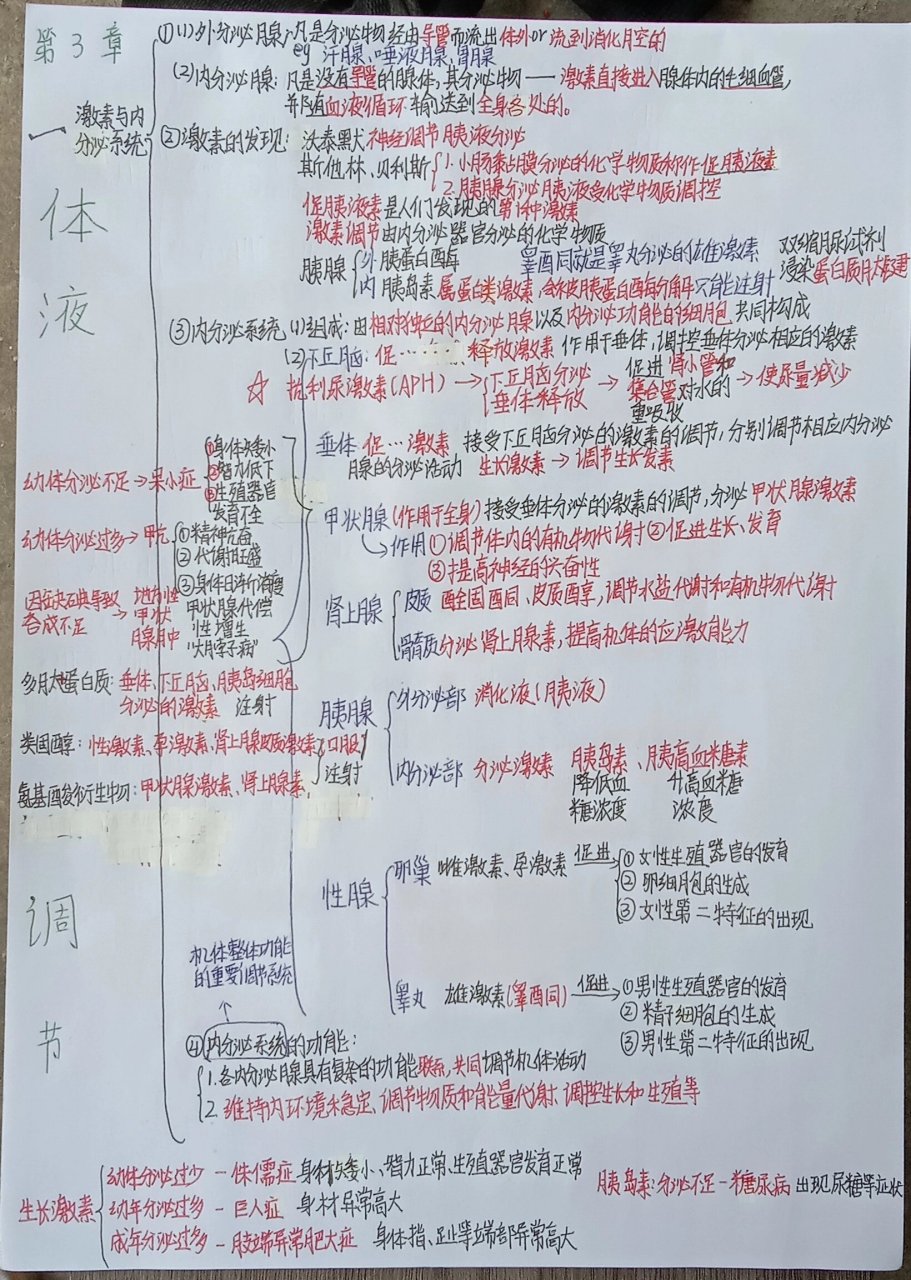 第3章
体液调节
一 激素与内分泌系统
①(1)外分泌腺:凡是分泌物经由导管而流出体外or流到消化腔的
eg 汗腺、唾液腺、胃腺
(2)内分泌腺:凡是没有导管的腺体,其分泌物——激素直接进入腺体内的毛细血管,
并随血液循环输送到全身各处的。
②激素的发现:沃泰默 神经调节胰液分泌
斯他林、贝利斯 1.小肠黏膜分泌的化学物质称作促胰液素
2.胰腺分泌胰液受化学物质调控
促胰液素是人们发现的第1种激素
激素调节由内分泌器官分泌的化学物质
胰腺 外 胰蛋白酶
睾酮就是睾丸分泌的雄激素
双缩脲试剂
内 胰岛素属蛋白类激素,会使胰蛋白酶分解 只能注射
浸染蛋白质肽键
③内分泌系统 (1)组成:由相对独立的内分泌腺以及内分泌功能的细胞共同构成
(2)下丘脑:促…… 释放激素 作用于垂体,调控垂体分泌相应的激素
☆ 抗利尿激素(APH)→ 下丘脑分泌
垂体释放 → 促进肾小管和
集合管对水的
重吸收 → 使尿量减少
垂体 促…激素 接受下丘脑分泌的激素的调节,分别调节相应内分泌
腺的分泌活动 生长激素→调节生长发素
甲状腺(作用于全身)接受垂体分泌的激素的调节,分泌甲状腺激素
作用①调节体内的有机物代谢②促进生长、发育
③提高神经的兴奋性
幼体分泌不足→呆小症
①身体矮小
②智力低下
③生殖器官
发育不全
幼体分泌过多→甲亢
①精神亢奋
②代谢旺盛
③身体日渐消瘦
因缺碘导致
合成不足 → 地方性
甲状
腺肿
甲状腺代偿
性增生
“大脖子病”
肾上腺 皮质 醛固酮、皮质醇,调节水盐代谢和有机物代谢
髓质 分泌肾上腺素,提高机体的应激能力
多肽蛋白质:垂体、下丘脑、胰岛细胞
分泌的激素 注射
类固醇:性激素、孕激素、肾上腺皮质激素 口服
注射
氨基酸衍生物:甲状腺激素、肾上腺素
胰腺 外分泌部 消化液(胰液)
内分泌部 分泌激素 胰岛素、胰高血糖素
降低血
糖浓度
升高血糖
浓度
性腺 卵巢 雌激素、孕激素 促进→ ①女性生殖器官的发育
②卵细胞的生成
③女性第二特征的出现
睾丸 雄激素(睾酮) 促进→ ①男性生殖器官的发育
②精子细胞的生成
③男性第二特征的出现
机体整体功能
的重要调节系统
④内分泌系统的功能:
1.各内分泌腺具有复杂的功能联系,共同调节机体活动
2.维持内环境稳定、调节物质和能量代谢、调控生长和生殖等
生长激素
幼体分泌过少-侏儒症 身材矮小、智力正常、生殖器官发育正常
幼年分泌过多-巨人症 身材异常高大
成年分泌过多-肢端异常肥大症 身体指、趾等端部异常高大
胰岛素:分泌不足-糖尿病 出现尿糖等症状